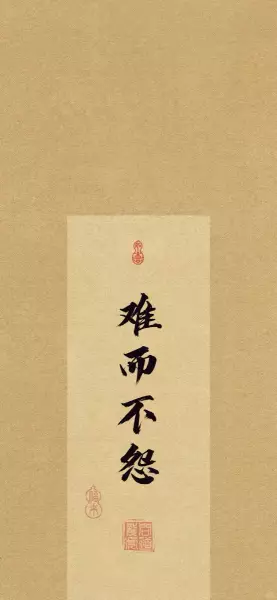 难而不怨